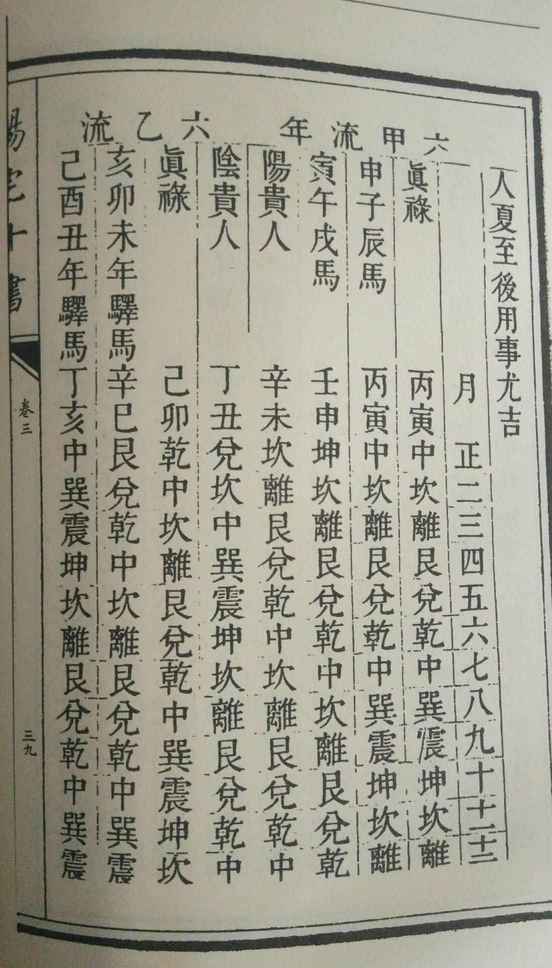 人夏至後用事尤吉
六甲流年
月 正二三四五六七八九十十一十二
眞祿 丙寅中坎離艮兌乾中巽震坤坎離
申子辰馬 丙寅中坎離艮兌乾中巽震坤坎離
寅午戌馬 壬申坤坎離艮兌乾中坎離艮兌乾
陽貴人 辛未坎離艮兌乾中坎離艮兌乾中
陰貴人 丁丑兌坎中巽震坤坎離艮兌乾中
六乙流
眞祿 己卯乾中坎離艮兌乾中巽震坤坎
亥卯未年驛馬辛巳艮兌乾中坎離艮兌乾中巽震
己酉丑年驛馬丁亥中巽震坤坎離艮兌乾中巽震
陽宅十書
卷三
三九